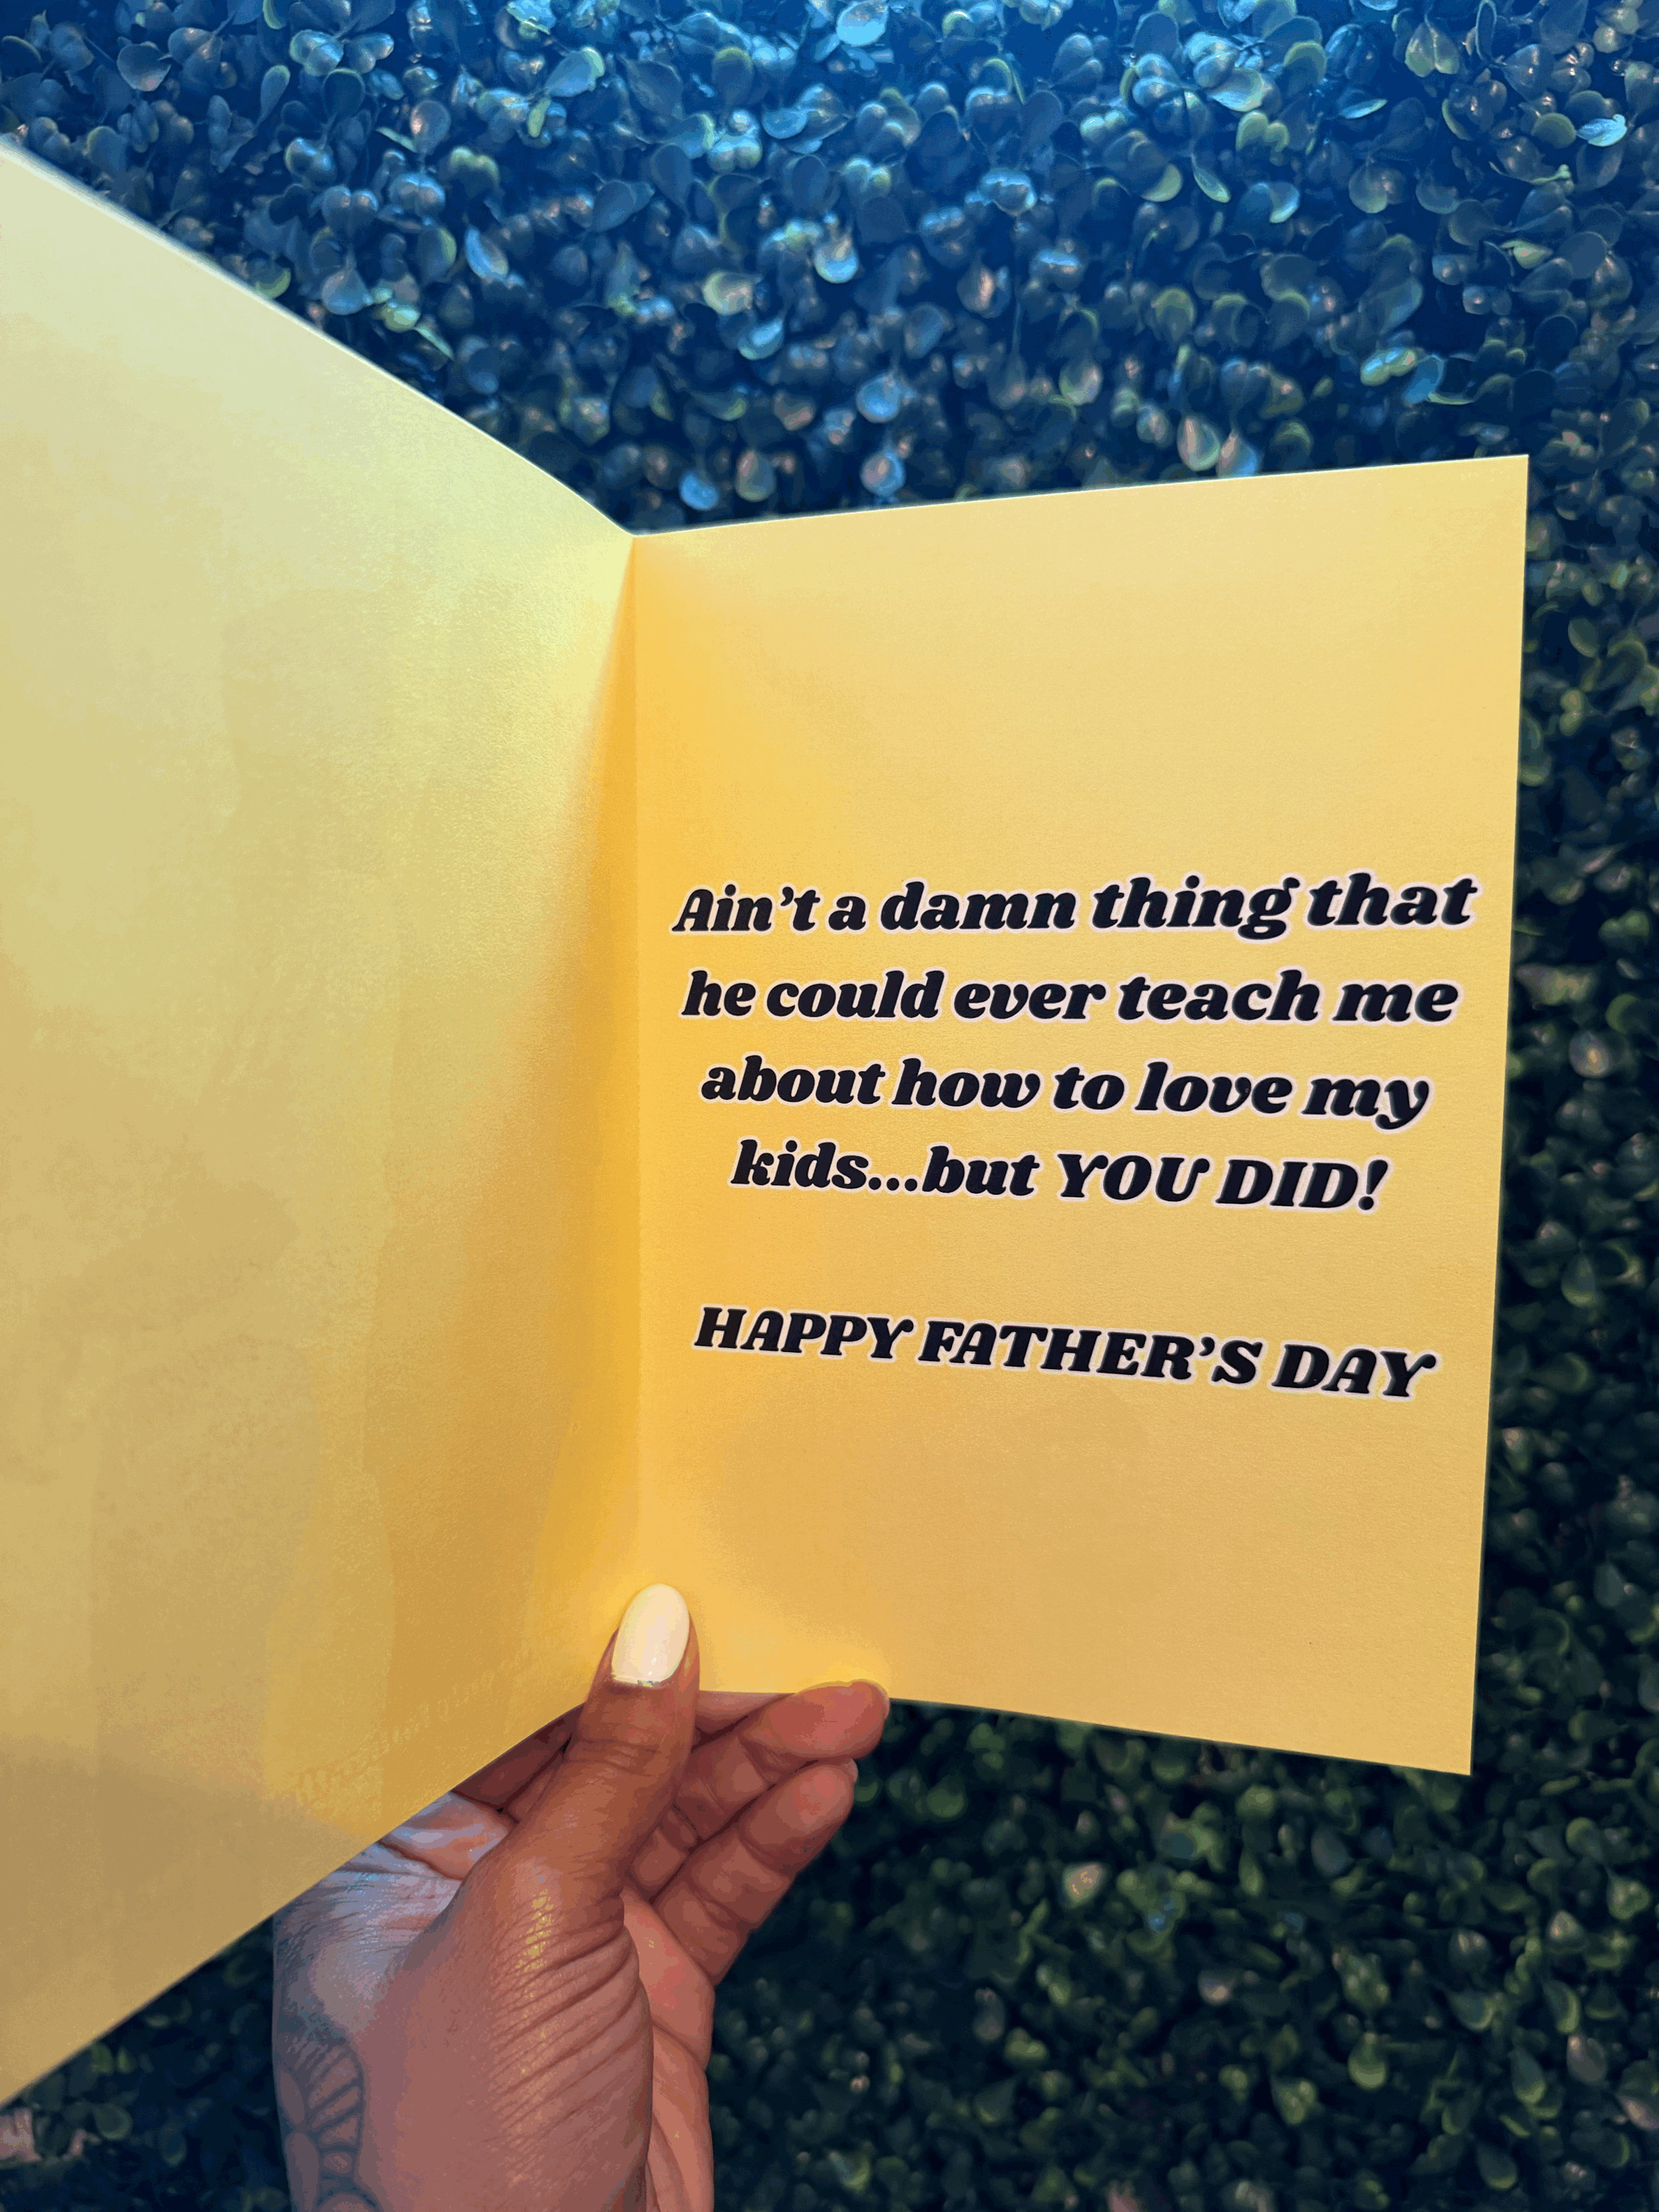 Ain’t a damn thing that
he could ever teach me
about how to love my
kids...but YOU DID!
HAPPY FATHER’S DAY